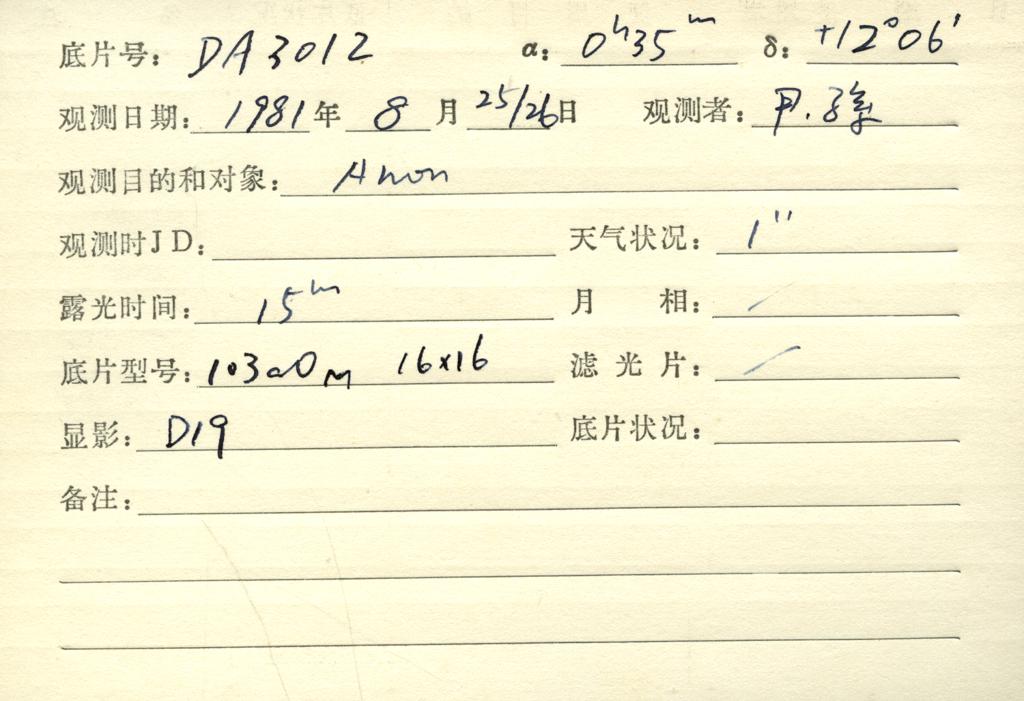 底片号: DA3012 α: 0ʰ35ᵐ δ: +12°06′
观测日期: 1981年 8月 25/26日 观测者: 甲.孫
观测目的和对象: Anon
观测时JD: 天气状况: 1″
露光时间: 15ᵐ 月 相: /
底片型号: 103aO 16×16 滤光片: /
显影: D19 底片状况:
备注: